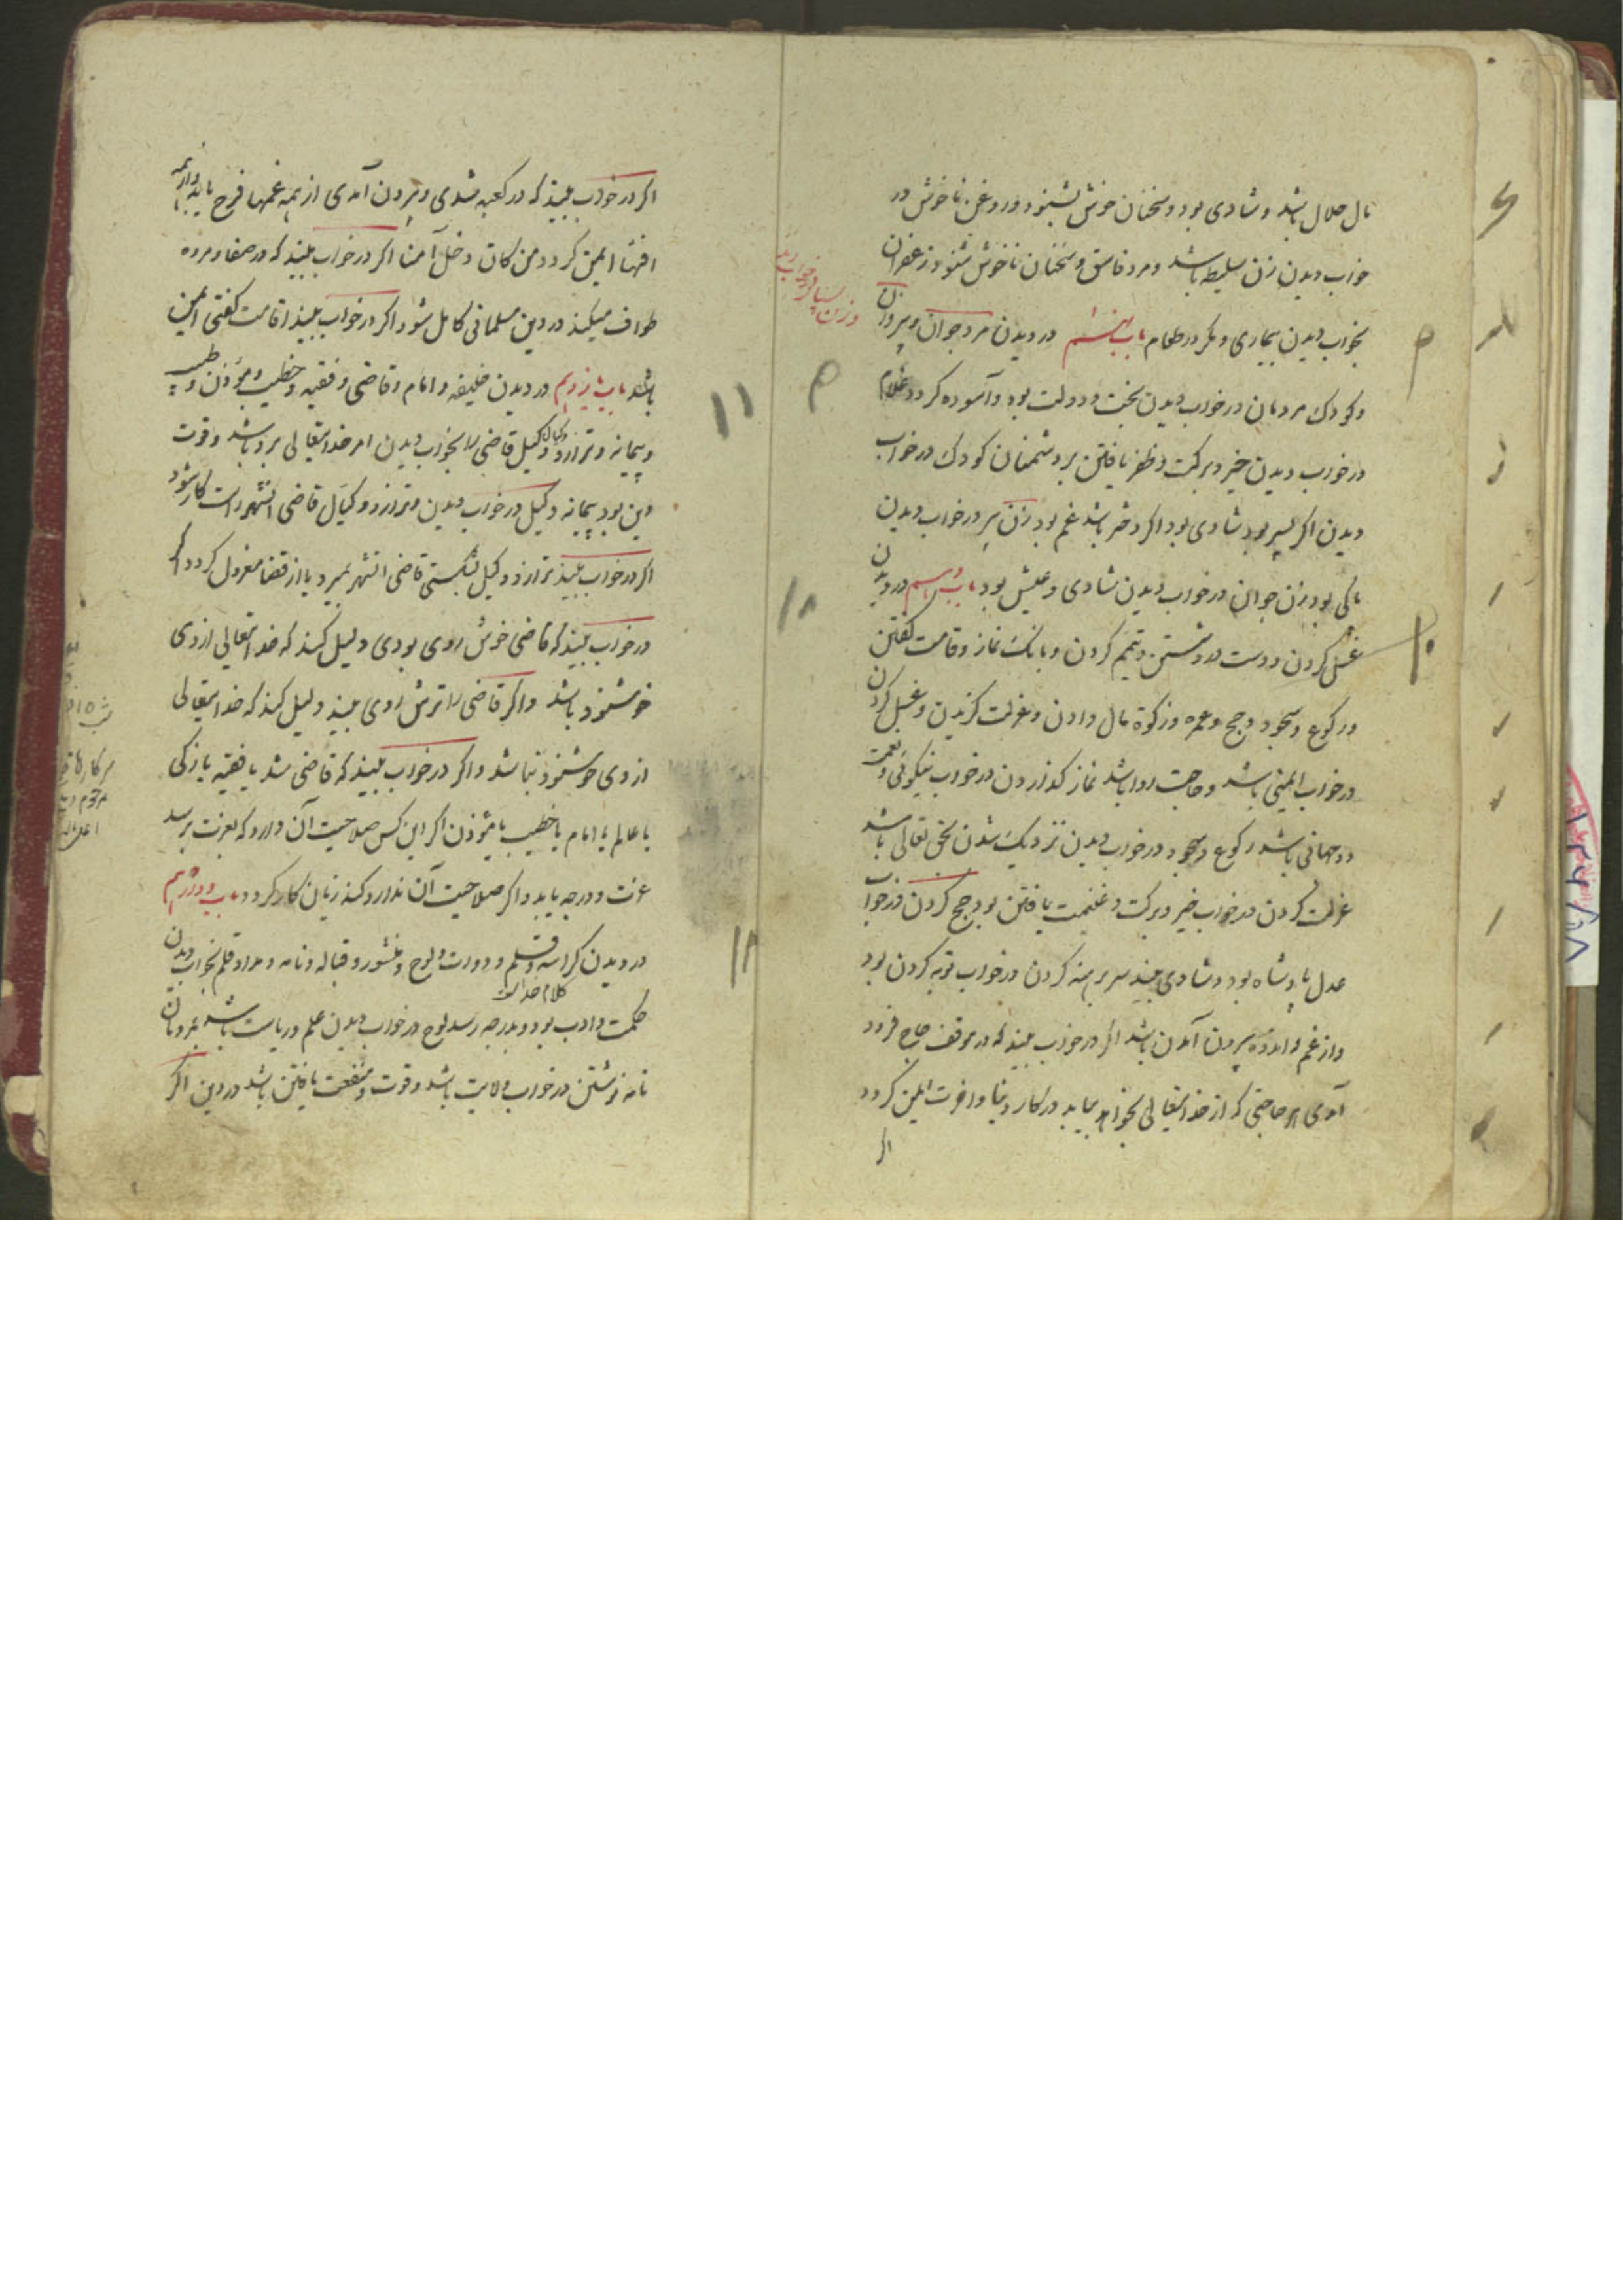 مال حلال باشد و شادی بود و سخنان خوش بشنود و روغن ناخوش در
خواب دیدن زن سلیطه باشد و مرد فاسق و سخنان ناخوش شنود زعفران
بخواب دیدن بیماری و مکر در طعام باب نهم در دیدن مرد جوان و پیر و زن
و کودک مردمان در خواب دیدن بخت و دولت بود و آسوده کردد غلام
در خواب دیدن خیر و برکت و ظفر یافتن بر دشمنان کودک در خواب
دیدن اکر پسر بود شادی بود اکر دختر باشد غم بود زن پیر در خواب دیدن
پاکی بود زن جوان در خواب دیدن شادی و عیش بود باب دهم در دیدن
غسل کردن و دست و رو شستن و تیمم کردن و بانک نماز و قامت کفتن
و رکوع و سجود و حج و عمره و زکوة مال دادن و عزلت کزیدن و غسل کردن
در خواب ایمنی باشد و حاجت روا باشد نماز کذاردن در خواب نیکوئی و نعمت
دو جهانی باشد رکوع و سجود در خواب دیدن نزدیک شدن بحق تعالی باشد
عزلت کردن در خواب خیر و برکت و غنیمت یافتن بود حج کردن در خواب
عدل پادشاه بود و شادی بیند سر برهنه کردن در خواب توبه کردن بود
و از غم و اندوه بیرون آمدن باشد اکر در خواب بیند که در موقف حاج فرود
آمدی هر حاجتی که از خدایتعالی بخواهد بیابد در کار دنیا و اخرت ایمن کردد
اکر
۱۰
اکر در خواب بیند که در کعبه شدی و بیرون آمدی از همه غمها فرح یابد و از همه
افتها ایمن کردد من کان دخل آمنا اکر در خواب بیند که در صفا و مروه
طواف میکند در دین مسلمانی کامل شود اکر در خواب بیند اقامت کفتی ایمن
باشد باب یازدهم در دیدن خلیفه و امام و قاضی و فقیه و خطیب و مؤذن و طبیب
و پیمانه و ترازو و کیل قاضی را بخواب دیدن امر خدایتعالی برو باشد و قوت
دین بود پیمانه و کیل در خواب دیدن و ترازو و کیال قاضی انشهر راست کار شود
اکر در خواب بیند ترازو و کیل بشکستی قاضی انشهر بمیرد یا از قضا معزول کردد اکر
در خواب بیند که قاضی خوش روی بودی دلیل کند که خدایتعالی از وی
خوشنود باشد و اکر قاضی را ترش روی بیند دلیل کند که خدایتعالی
از وی خوشنود نباشد و اکر در خواب بیند که قاضی شد یا فقیه یا زکی
یا عالم یا امام یا خطیب یا مؤذن اکر این کس صلاحیت آن دارد که بعزت برسد
عزت و درجه یابد و اکر صلاحیت آن ندارد کنه زیان کار کردد باب دوازدهم
در دیدن کراسه و قلم و دوات و لوح و منشور و قباله و نامه و مداد قلم بخواب دیدن
کلام خداست
حکمت و ادب بود و بدرجه رسد لوح در خواب دیدن علم و ریاست باشد
نامه نوشتن در خواب ولایت باشد و قوت و منفعت یافتن باشد در دین اکر
۱۱